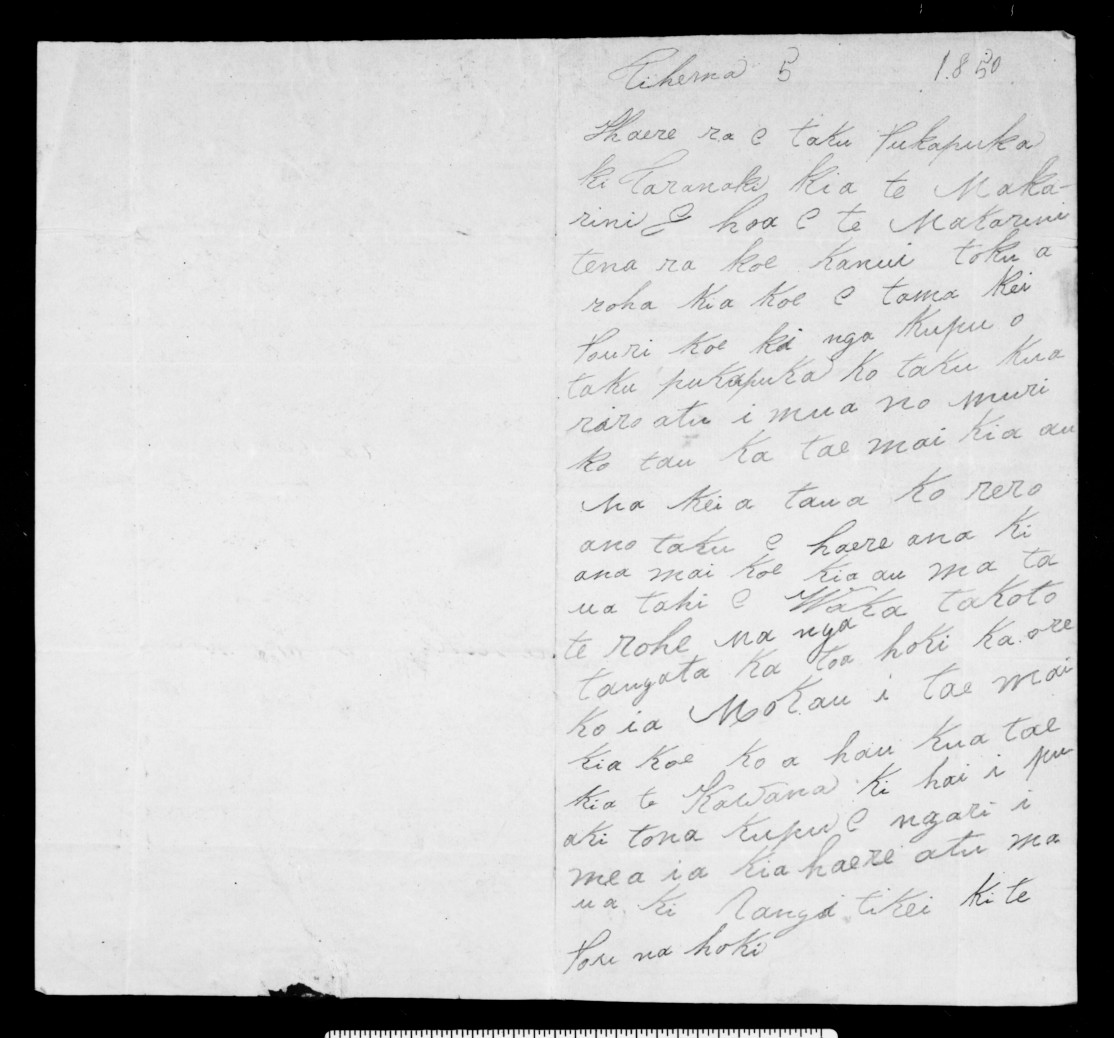 Tihema 5 1850
Haere ra e taku Pukapuka
ki Taranaki Kia te Maka-
rini E hoa e te Makarini
tena ra koe Kanui toku a
roha Kia Koe e tama Kei
Pouri Koe ki nga Kupu o
taku pukapuka Ko taku Kua
riro atu i mua no muri
ko tau Ka tae mai Kia au
Na Kei a taua Ko rero
ano taku e haere ana Ki
ana mai Koe Kia au ma ta
ua tahi e Waka takoto
te rohe Na nga
tangata Ka toa hoki Ka ore
Ko ia Mokau i tae mai
Kia Koe Ko a hau Kua tae
Kia te Kawana Ki hai i pu
aki tona Kupu E ngari i
mea ia Kia haere atu ma
ua Ki Rangi tikei Ki te
Pou na hoki